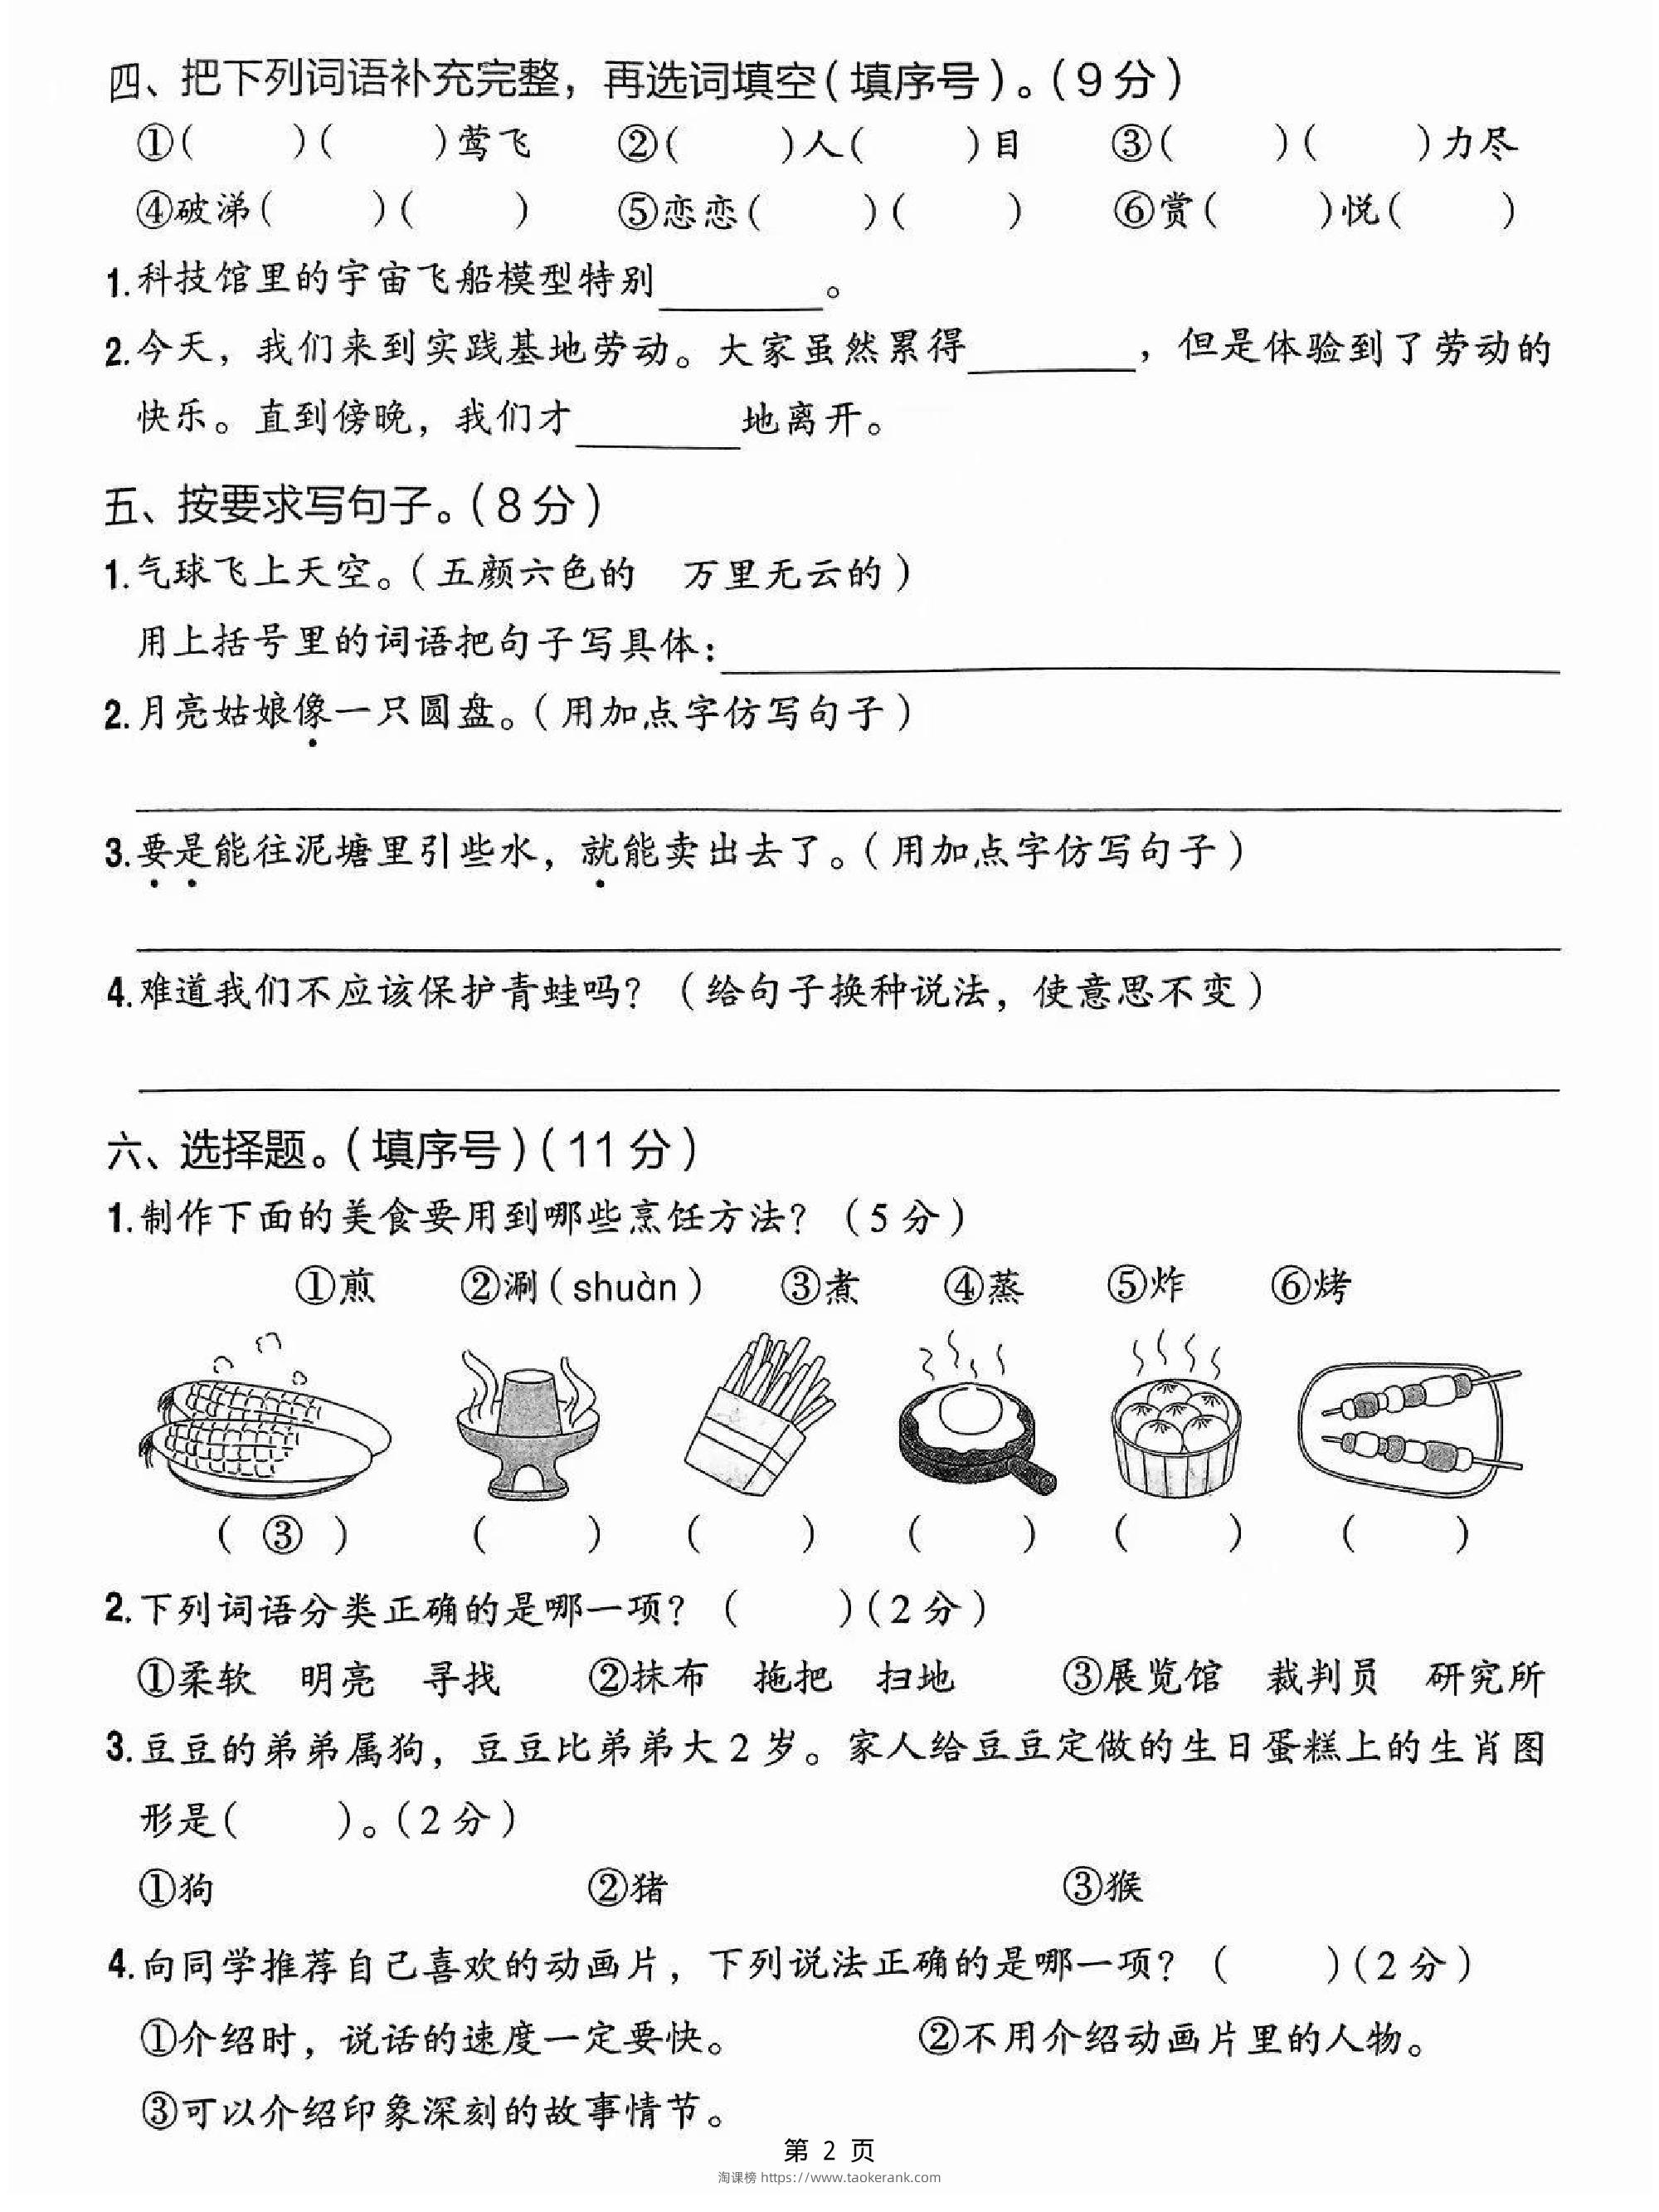 四、把下列词语补充完整，再选词填空(填序号)。(9分)
①(　　)(　　)莺飞　②(　　)人(　　)目　③(　　)(　　)力尽
④破涕(　　)(　　)　⑤恋恋(　　)(　　)　⑥赏(　　)悦(　　)
1.科技馆里的宇宙飞船模型特别________。
2.今天，我们来到实践基地劳动。大家虽然累得________，但是体验到了劳动的
快乐。直到傍晚，我们才________地离开。
五、按要求写句子。(8分)
1.气球飞上天空。(五颜六色的　万里无云的)
用上括号里的词语把句子写具体：________
2.月亮姑娘像一只圆盘。(用加点字仿写句子)
3.要是能往泥塘里引些水，就能卖出去了。(用加点字仿写句子)
4.难道我们不应该保护青蛙吗？(给句子换种说法，使意思不变)
六、选择题。(填序号)(11分)
1.制作下面的美食要用到哪些烹饪方法？(5分)
①煎　②涮(shuàn)　③煮　④蒸　⑤炸　⑥烤
(③)　(　　)　(　　)　(　　)　(　　)　(　　)
2.下列词语分类正确的是哪一项？(　　)(2分)
①柔软　明亮　寻找　②抹布　拖把　扫地　③展览馆　裁判员　研究所
3.豆豆的弟弟属狗，豆豆比弟弟大2岁。家人给豆豆定做的生日蛋糕上的生肖图
形是(　　)。(2分)
①狗　②猪　③猴
4.向同学推荐自己喜欢的动画片，下列说法正确的是哪一项？(　　)(2分)
①介绍时，说话的速度一定要快。　②不用介绍动画片里的人物。
③可以介绍印象深刻的故事情节。
第 2 页
淘课榜 https://www.taokerank.com